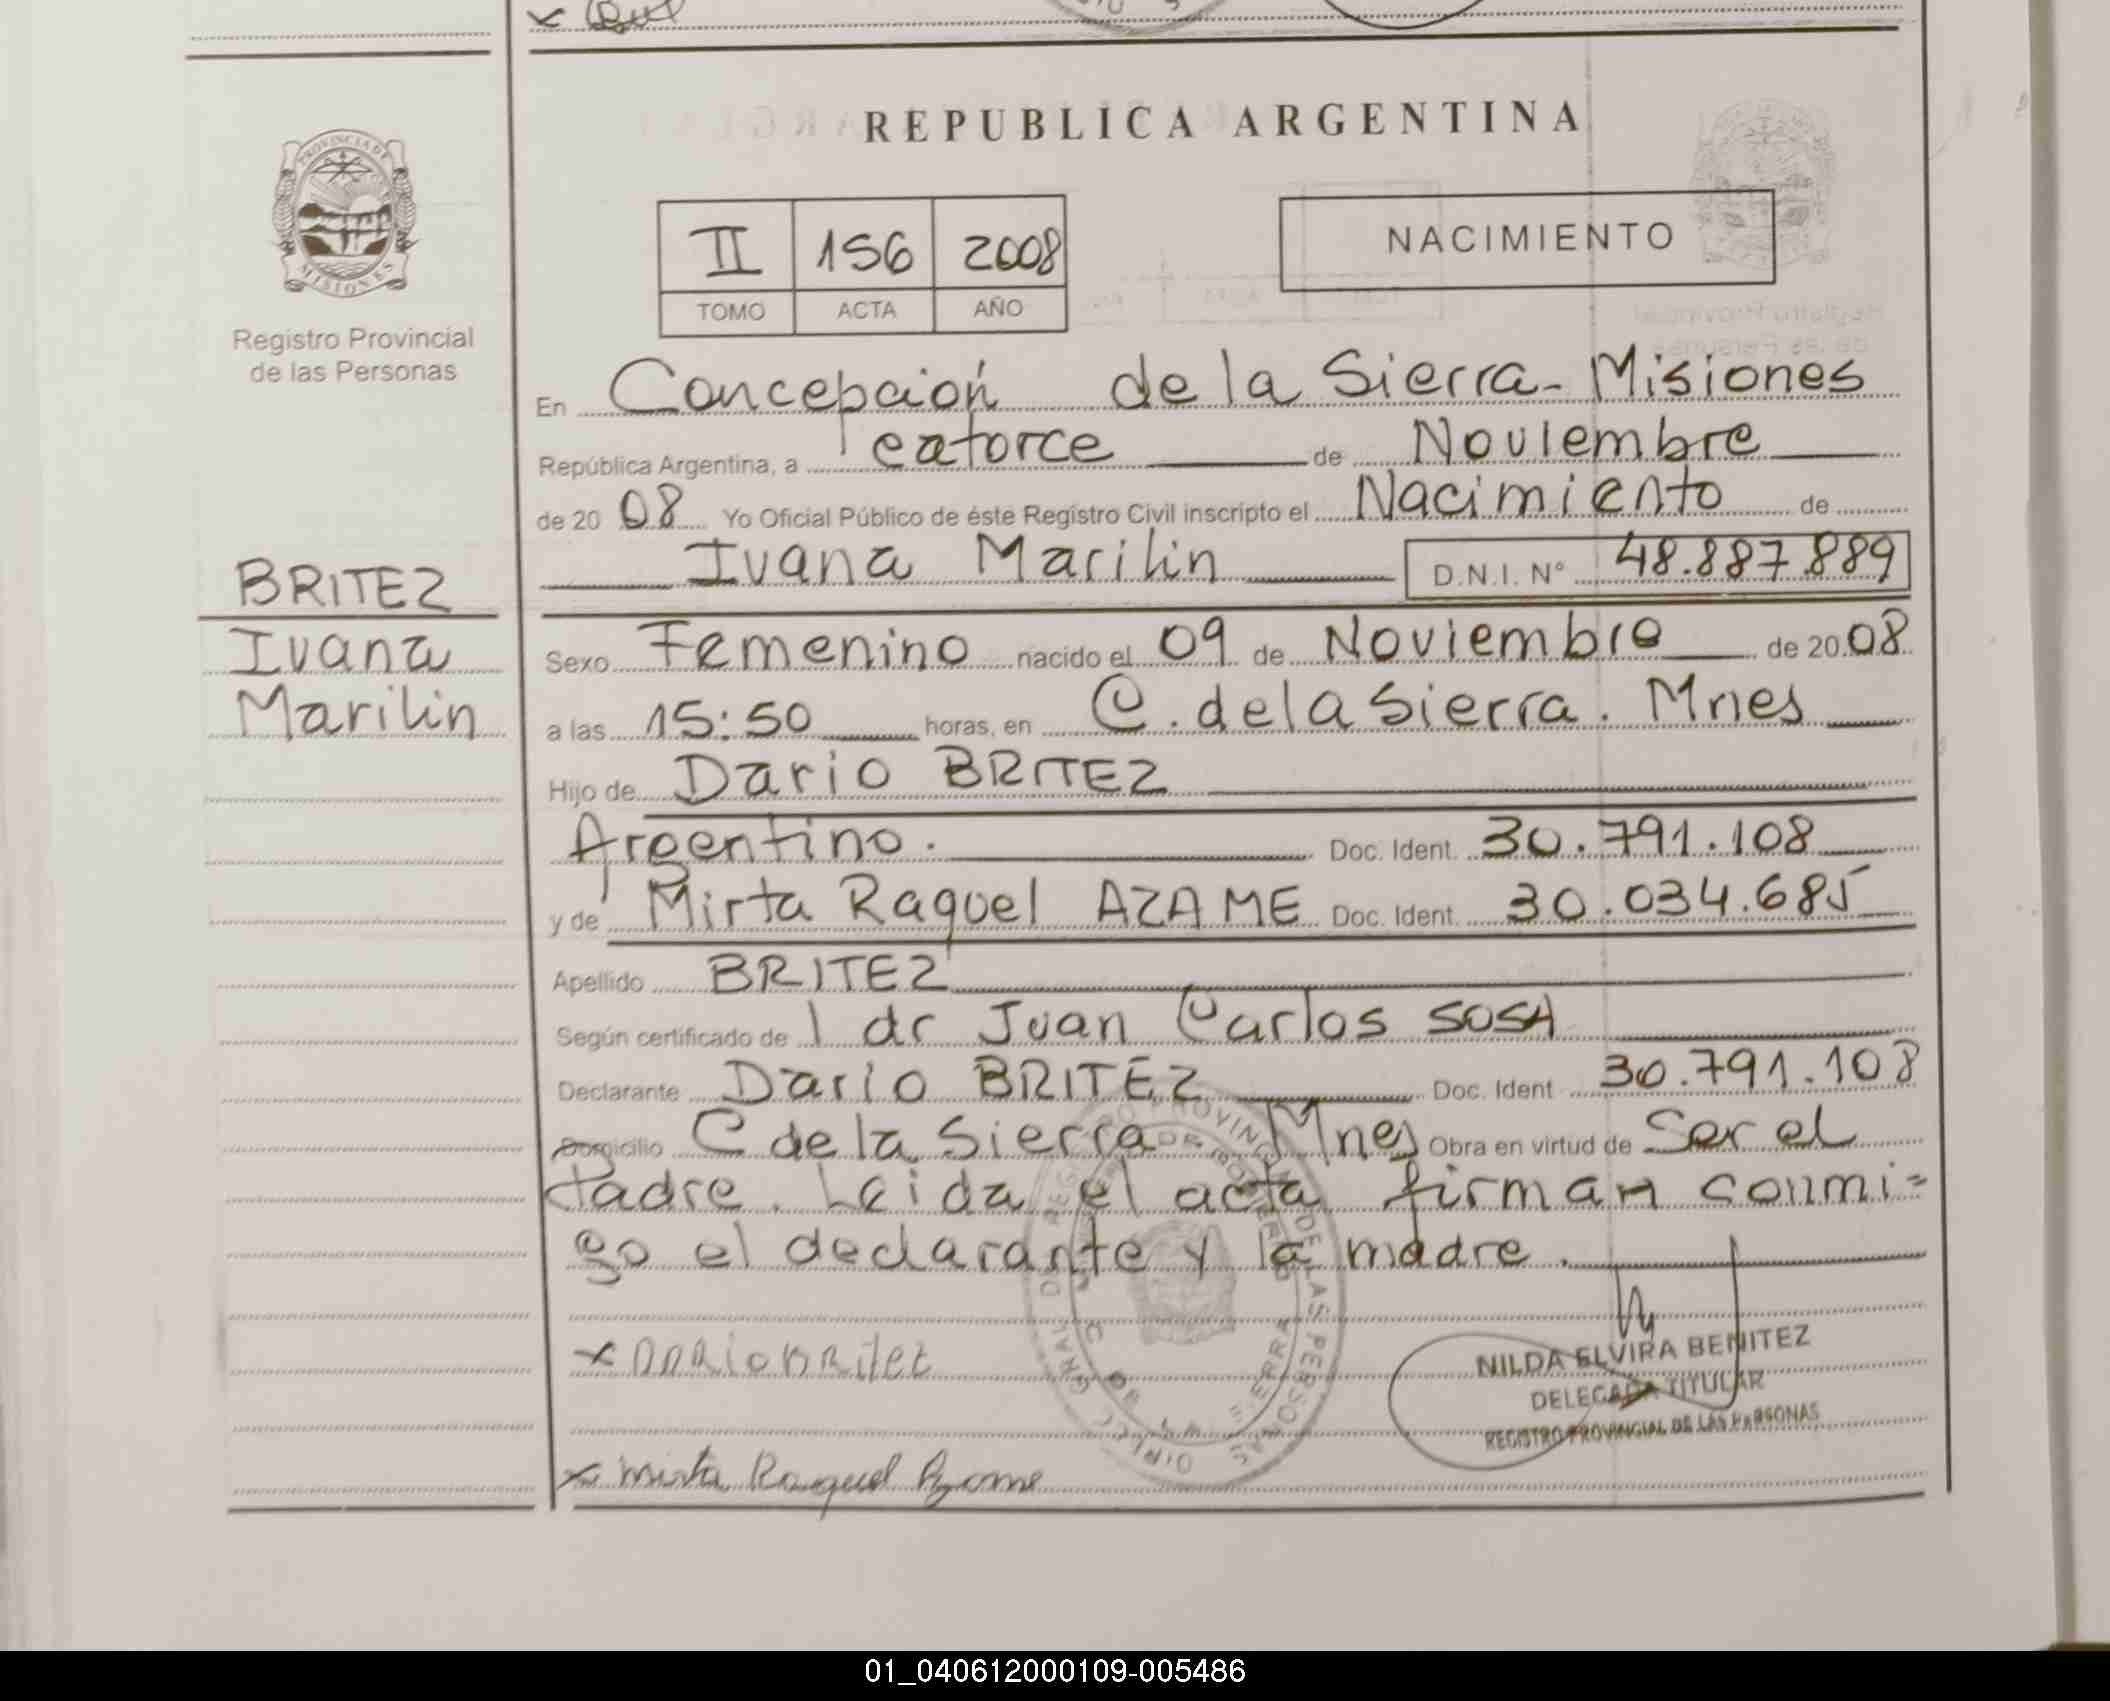 REPUBLICA ARGENTINA
PROVINCIA DE
MISIONES
Registro Provincial
de las Personas
II 156 2008
TOMO ACTA AÑO
NACIMIENTO
En Concepción de la Sierra - Misiones
República Argentina, a catorce de Noviembre
de 20 08 Yo Oficial Público de éste Registro Civil inscripto el Nacimiento de
Ivana Marilin D.N.I. N° 48.887.889
BRITEZ
Ivana
Marilin
Sexo Femenino nacido el 09 de Noviembre de 20 08
a las 15:50 horas, en C. de la Sierra. Mnes
Hijo de Dario BRITEZ
Argentino. Doc. Ident. 30.791.108
y de Mirta Raquel AZAME Doc. Ident. 30.034.685
Apellido BRITEZ
Según certificado de l dr Juan Carlos SOSA
Declarante Dario BRITEZ Doc. Ident 30.791.108
Domicilio C de la Sierra Mnes Obra en virtud de Ser el
Padre. Leida el acta firman conmi-
go el declarante y la madre.
x Dario Britez
NILDA ELVIRA BENITEZ
DELEGADA TITULAR
REGISTRO PROVINCIAL DE LAS PERSONAS
x Mirta Raquel Azame
01_040612000109-005486